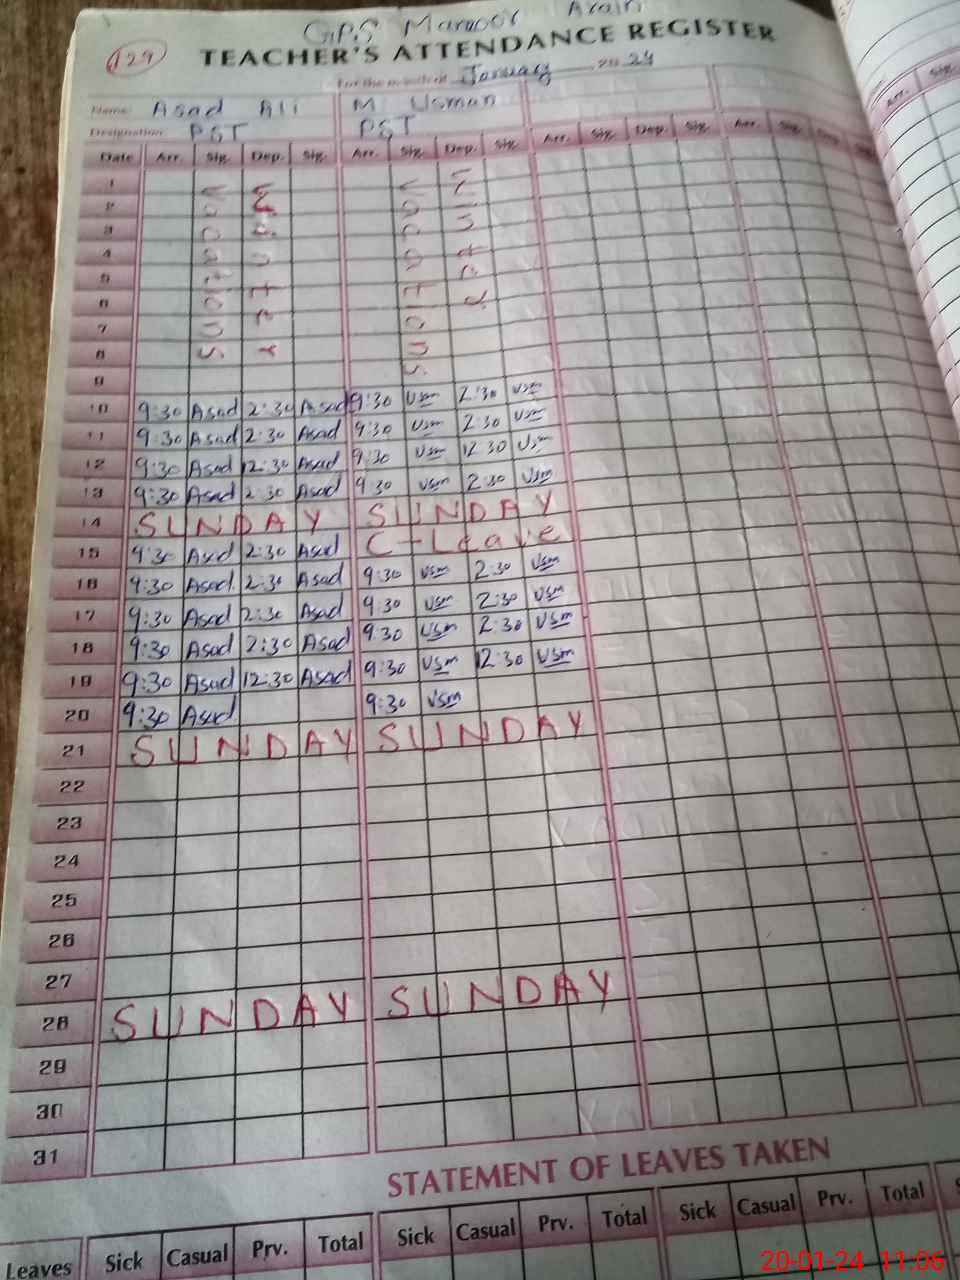 129
GPS Manoor Arain
TEACHER'S ATTENDANCE REGISTER
For the month of January 2024
Name: Asad Ali M Usman
Designation PST PST
Date Arr. Sig. Dep. Sig. Arr. Sig. Dep. Sig. Arr. Sig. Dep. Sig. Arr. Sig. Dep.
Vacations Winter Vacations Winter
1
2
3
4
5
6
7
8
9
10 9:30 Asad 2:30 Asad 9:30 Usm 2:30 Usm
11 9:30 Asad 2:30 Asad 9:30 Usm 2:30 Usm
12 9:30 Asad 12:30 Asad 9:30 Usm 12:30 Usm
13 9:30 Asad 2:30 Asad 9:30 Usm 2:30 Usm
14 SUNDAY SUNDAY
15 9:30 Asad 2:30 Asad C-Leave
16 9:30 Asad 2:30 Asad 9:30 Usm 2:30 Usm
17 9:30 Asad 2:30 Asad 9:30 Usm 2:30 Usm
18 9:30 Asad 2:30 Asad 9:30 Usm 2:30 Usm
19 9:30 Asad 12:30 Asad 9:30 Usm 12:30 Usm
20 9:30 Asad 9:30 Usm
21 SUNDAY SUNDAY
22
23
24
25
26
27
28 SUNDAY SUNDAY
29
30
31
STATEMENT OF LEAVES TAKEN
Leaves Sick Casual Prv. Total Sick Casual Prv. Total Sick Casual Prv. Total
Arr. Sig.
20-01-24 11:06